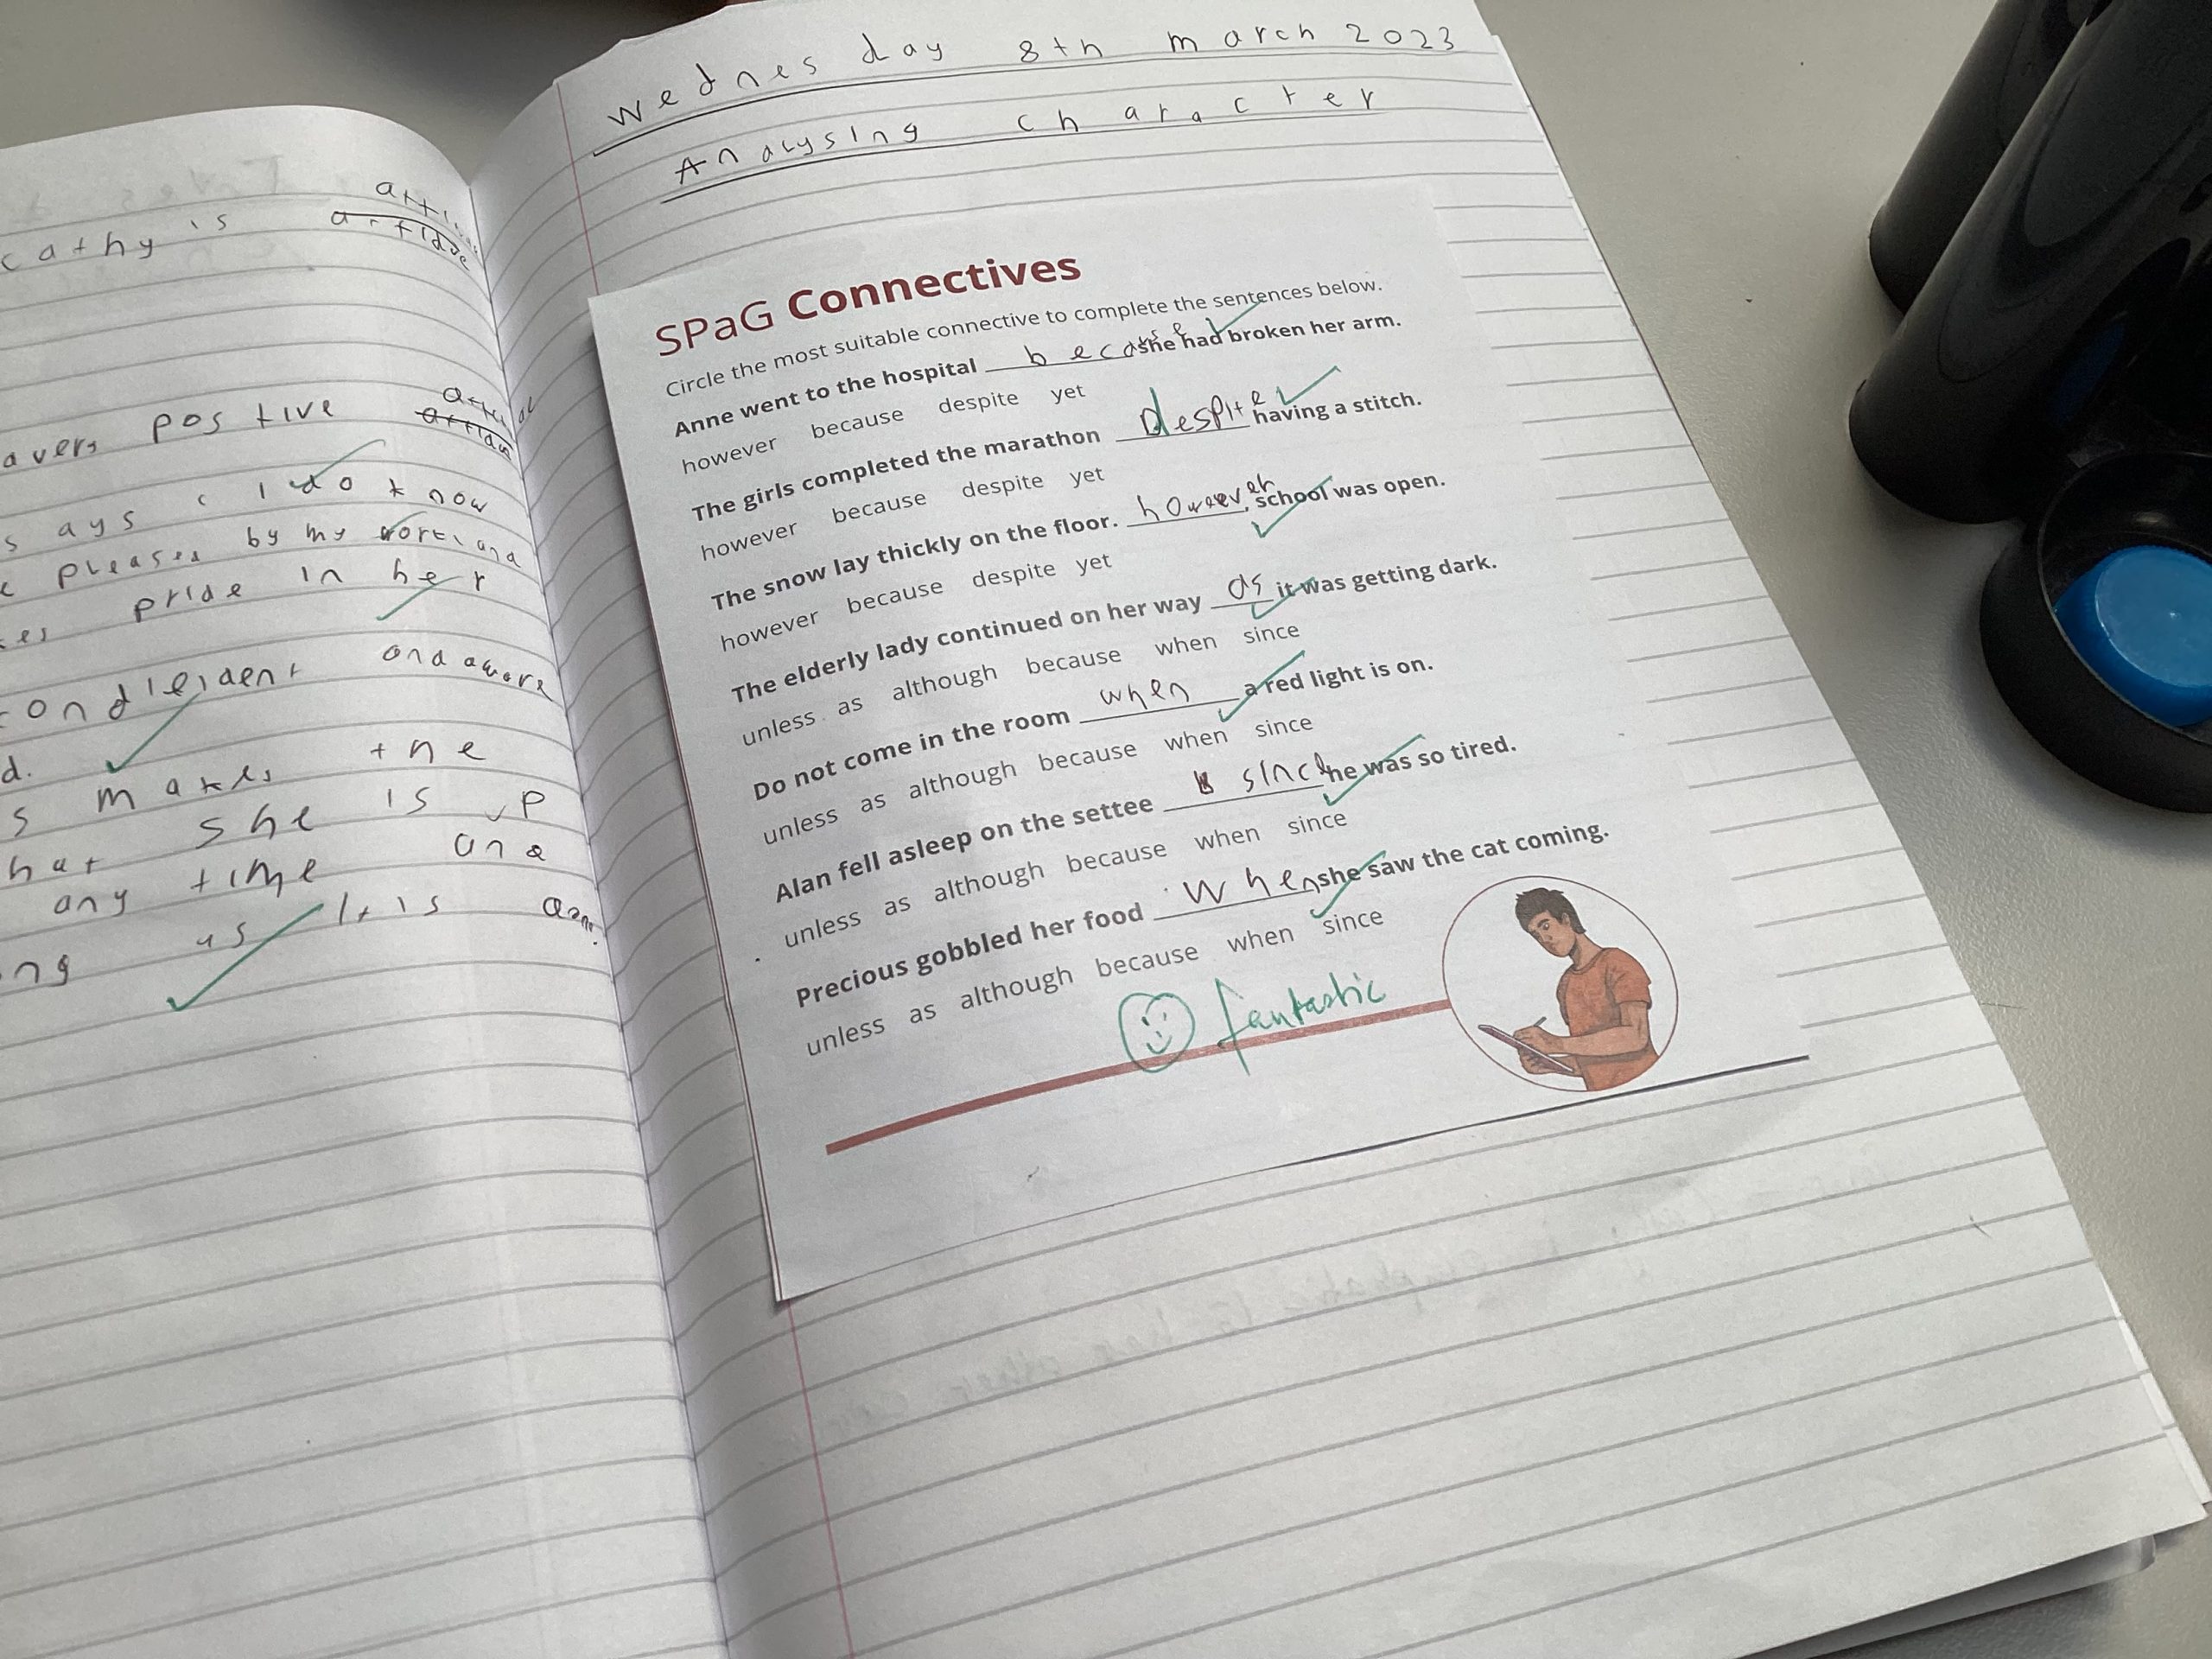 cathy is
positive
says I do know
pleases by my work and
pride in her
and aware
d.
s makes the
hat she is up
any time and
ng us It is
Wednesday 8th march 2023
Analysing character
SPaG Connectives
Circle the most suitable connective to complete the sentences below.
Anne went to the hospital because she had broken her arm.
however because despite yet
The girls completed the marathon Despite having a stitch.
however because despite yet
The snow lay thickly on the floor. however, school was open.
however because despite yet
The elderly lady continued on her way as it was getting dark.
unless as although because when since
Do not come in the room when a red light is on.
unless as although because when since
Alan fell asleep on the settee since he was so tired.
unless as although because when since
Precious gobbled her food when she saw the cat coming.
unless as although because when since
fantastic